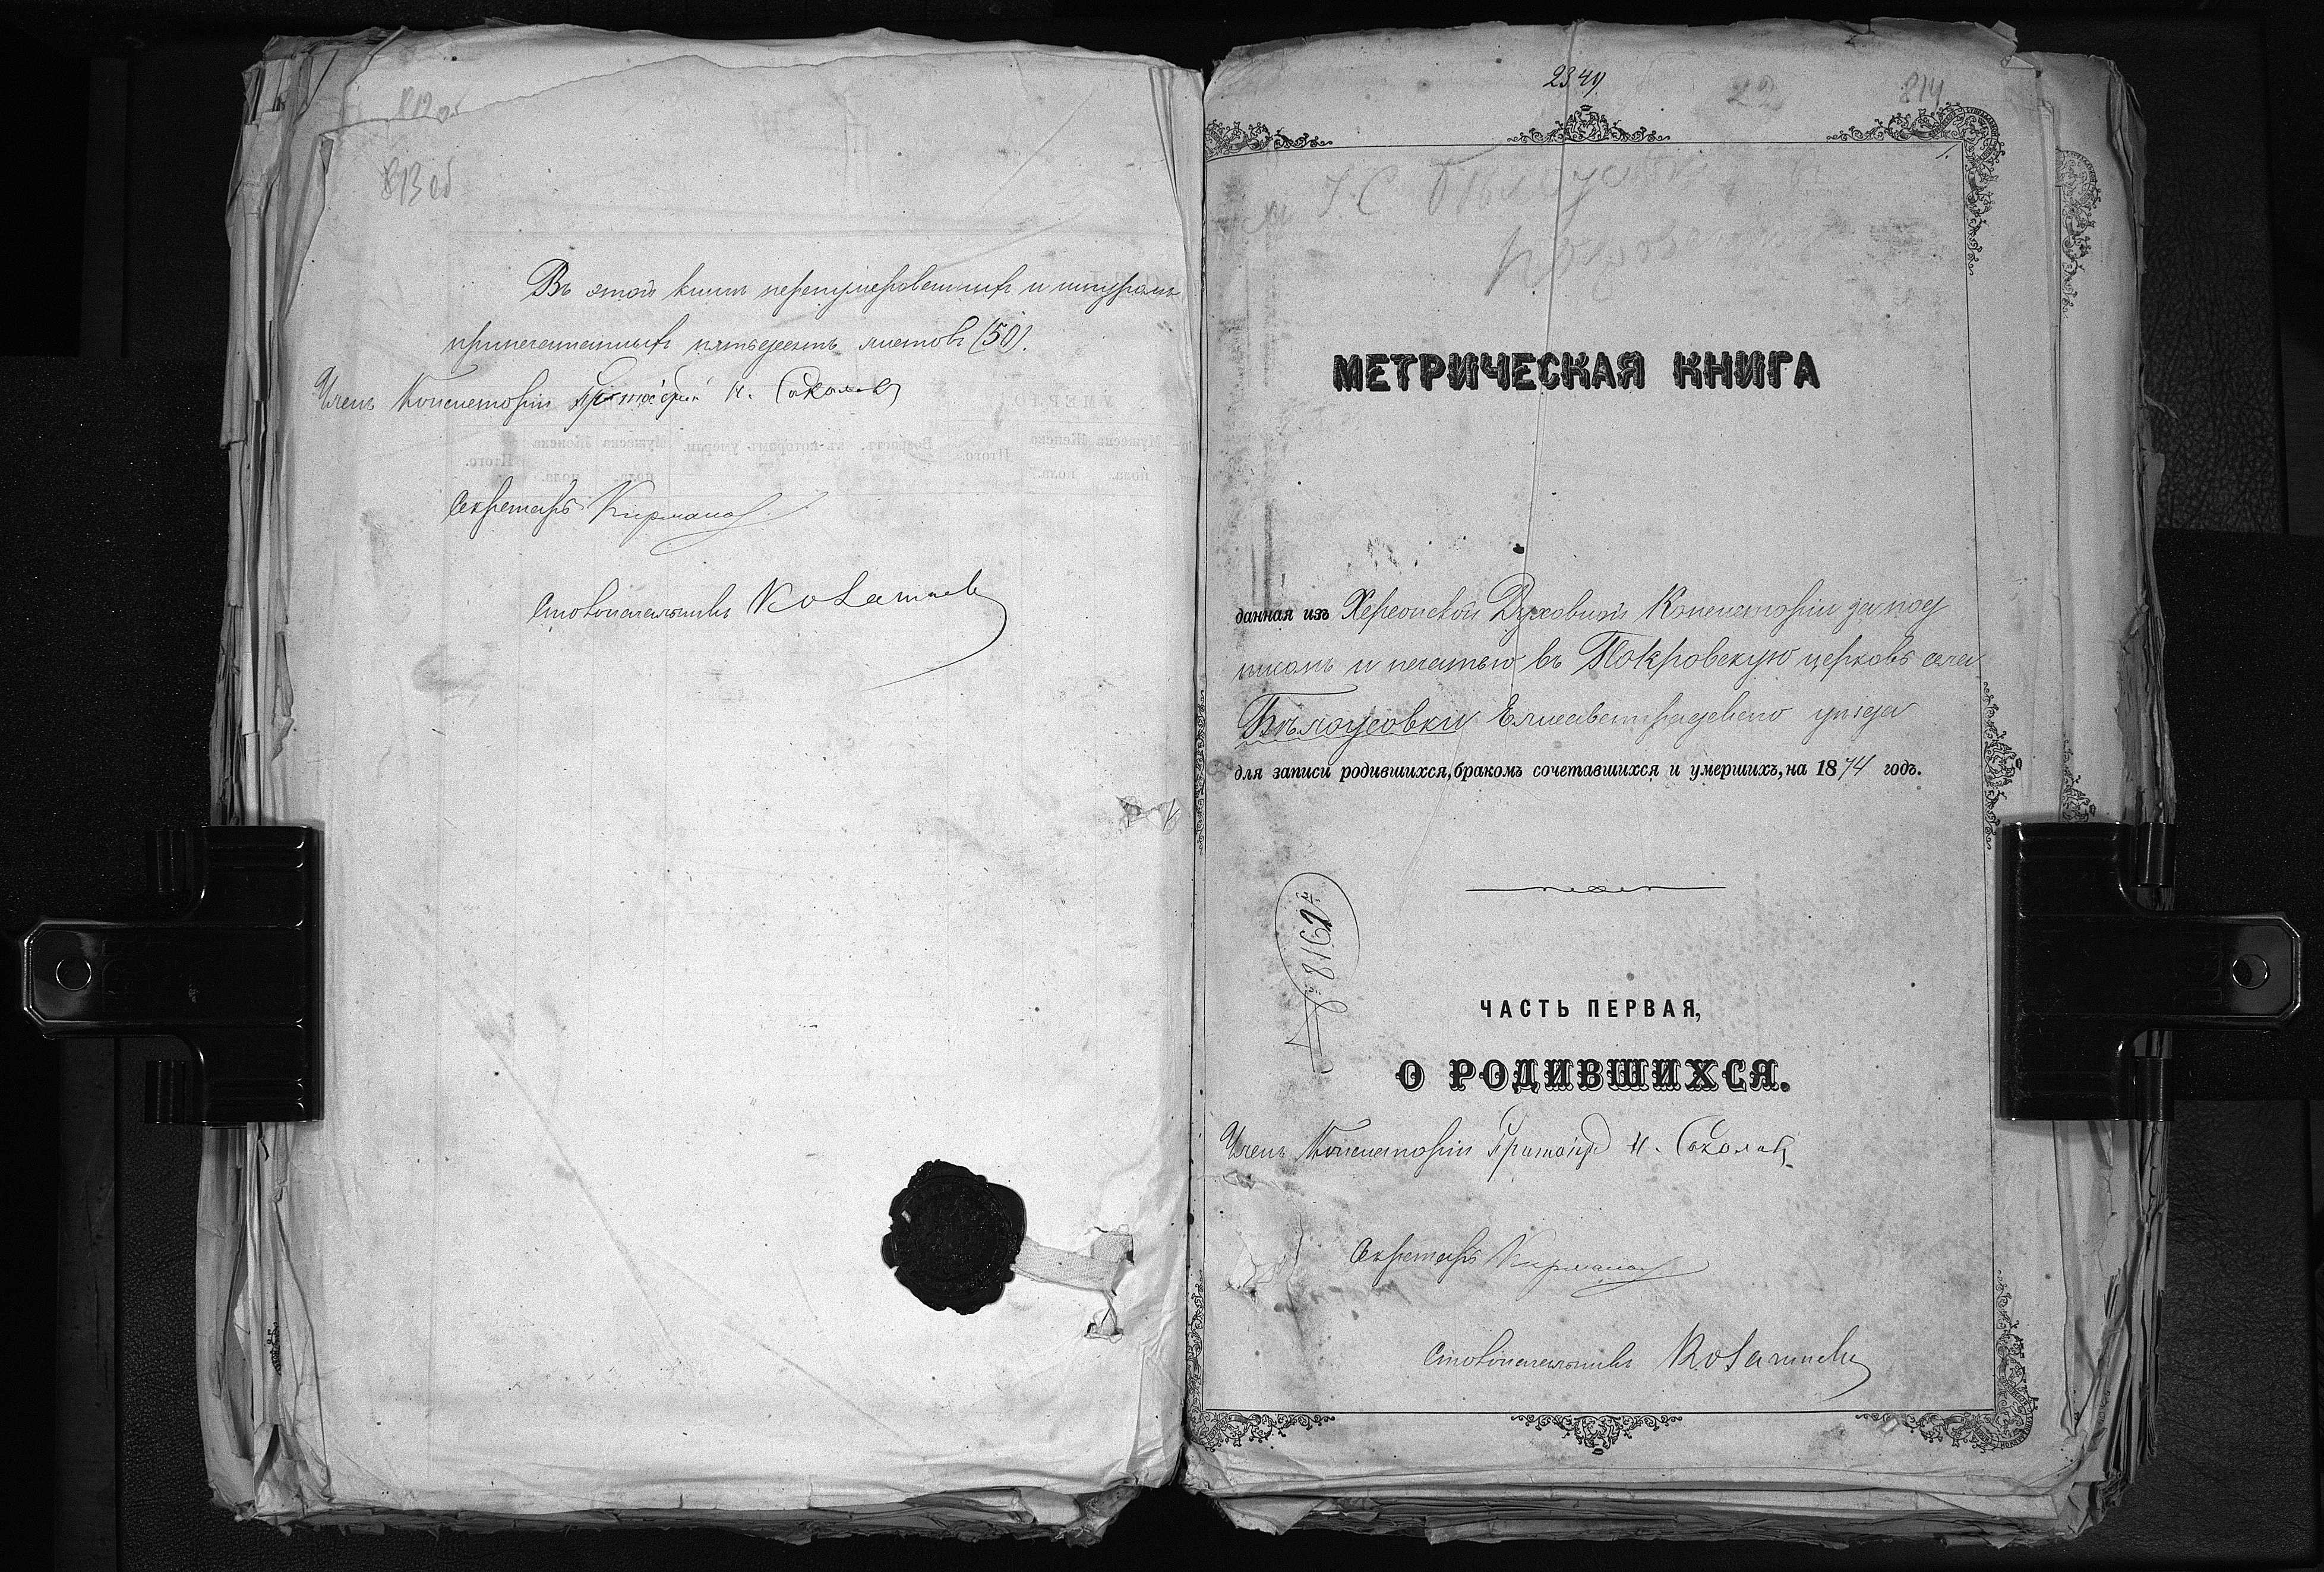 812 об
813 об
Въ этой книгѣ перенумерованныхъ и шнуромъ
припечатанныхъ пятьдесятъ листовъ (50).
Членъ Консисторіи Протоіерей Н. Соколовъ
Секретарь
Столоначальникъ
2349
22
814
1.
МЕТРИЧЕСКАЯ КНИГА
данная изъ Херсонской Духовной Консисторіи за под
писомъ и печатью въ Покровскую церковь села
Бѣлоусовки Елисаветградскаго уѣзда
для записи родившихся, бракомъ сочетавшихся и умершихъ, на 1874 годъ.
8162
ЧАСТЬ ПЕРВАЯ,
О РОДИВШИХСЯ.
Членъ Консисторіи Протоіер Н. Соколовъ
Секретарь
Столоначальникъ